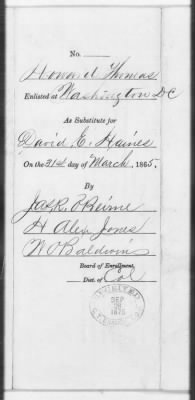 No.
Howard Thomas
Enlisted at Washington DC
As Substitute for
David E. Haines
On the 21st day of March, 1865.
By
Jas R. O'Beirne
H Alex Jones
W O Baldwin
Board of Enrollment,
Dist. of Col
SEP
1875